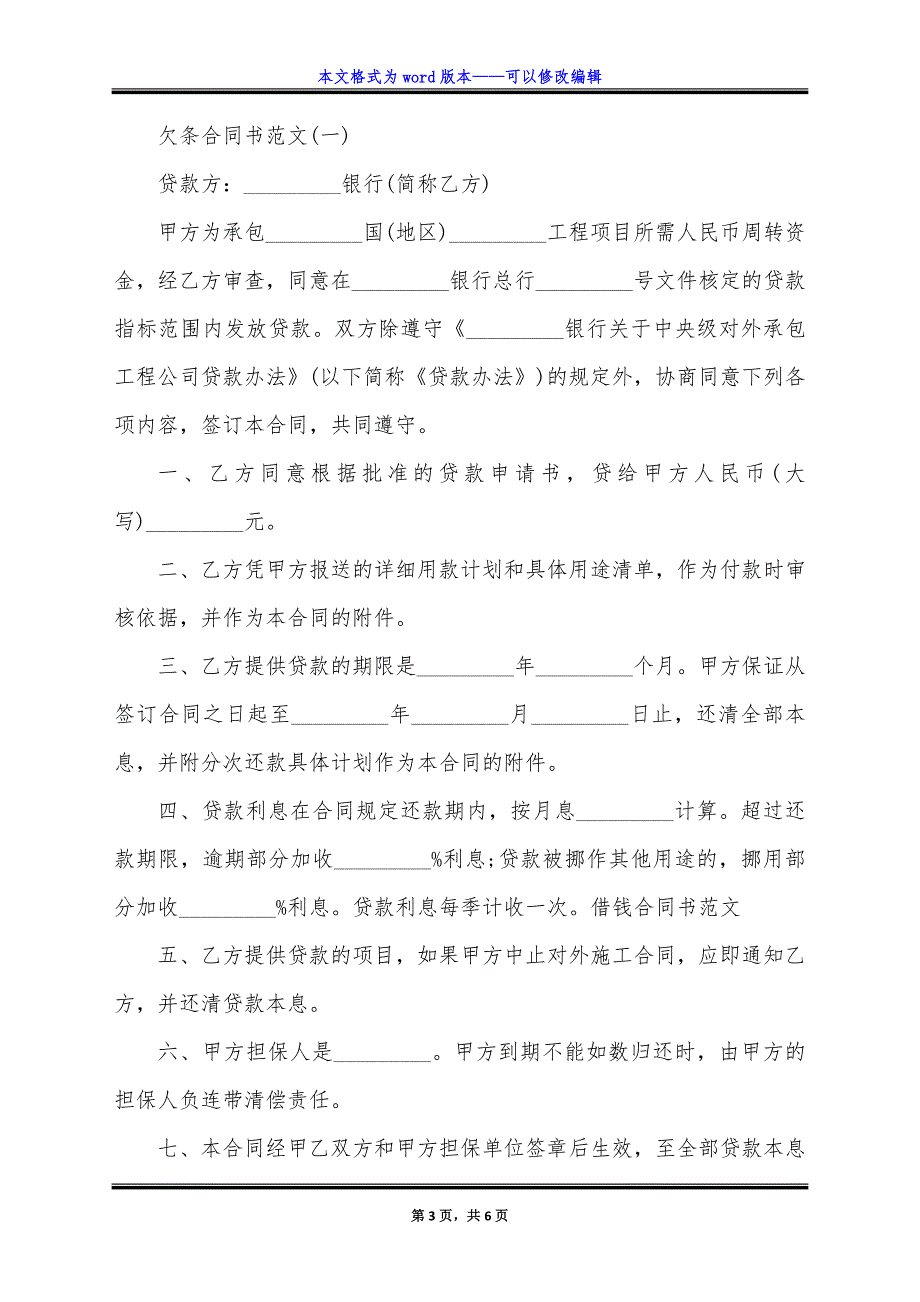 本文格式为 word 版本——可以修改编辑
欠条合同书范文(一)
贷款方：_________银行(简称乙方)
甲方为承包_________国(地区)_________工程项目所需人民币周转资
金，经乙方审查，同意在_________银行总行_________号文件核定的贷款
指标范围内发放贷款。双方除遵守《_________银行关于中央级对外承包
工程公司贷款办法》(以下简称《贷款办法》)的规定外，协商同意下列各
项内容，签订本合同，共同遵守。
一、乙方同意根据批准的贷款申请书，贷给甲方人民币(大
写)_________元。
二、乙方凭甲方报送的详细用款计划和具体用途清单，作为付款时审
核依据，并作为本合同的附件。
三、乙方提供贷款的期限是_________年_________个月。甲方保证从
签订合同之日起至_________年_________月_________日止，还清全部本
息，并附分次还款具体计划作为本合同的附件。
四、贷款利息在合同规定还款期内，按月息_________计算。超过还
款期限，逾期部分加收_________%利息;贷款被挪作其他用途的，挪用部
分加收_________%利息。贷款利息每季计收一次。借钱合同书范文
五、乙方提供贷款的项目，如果甲方中止对外施工合同，应即通知乙
方，并还清贷款本息。
六、甲方担保人是_________。甲方到期不能如数归还时，由甲方的
担保人负连带清偿责任。
七、本合同经甲乙双方和甲方担保单位签章后生效，至全部贷款本息
第 3 页，共 6 页